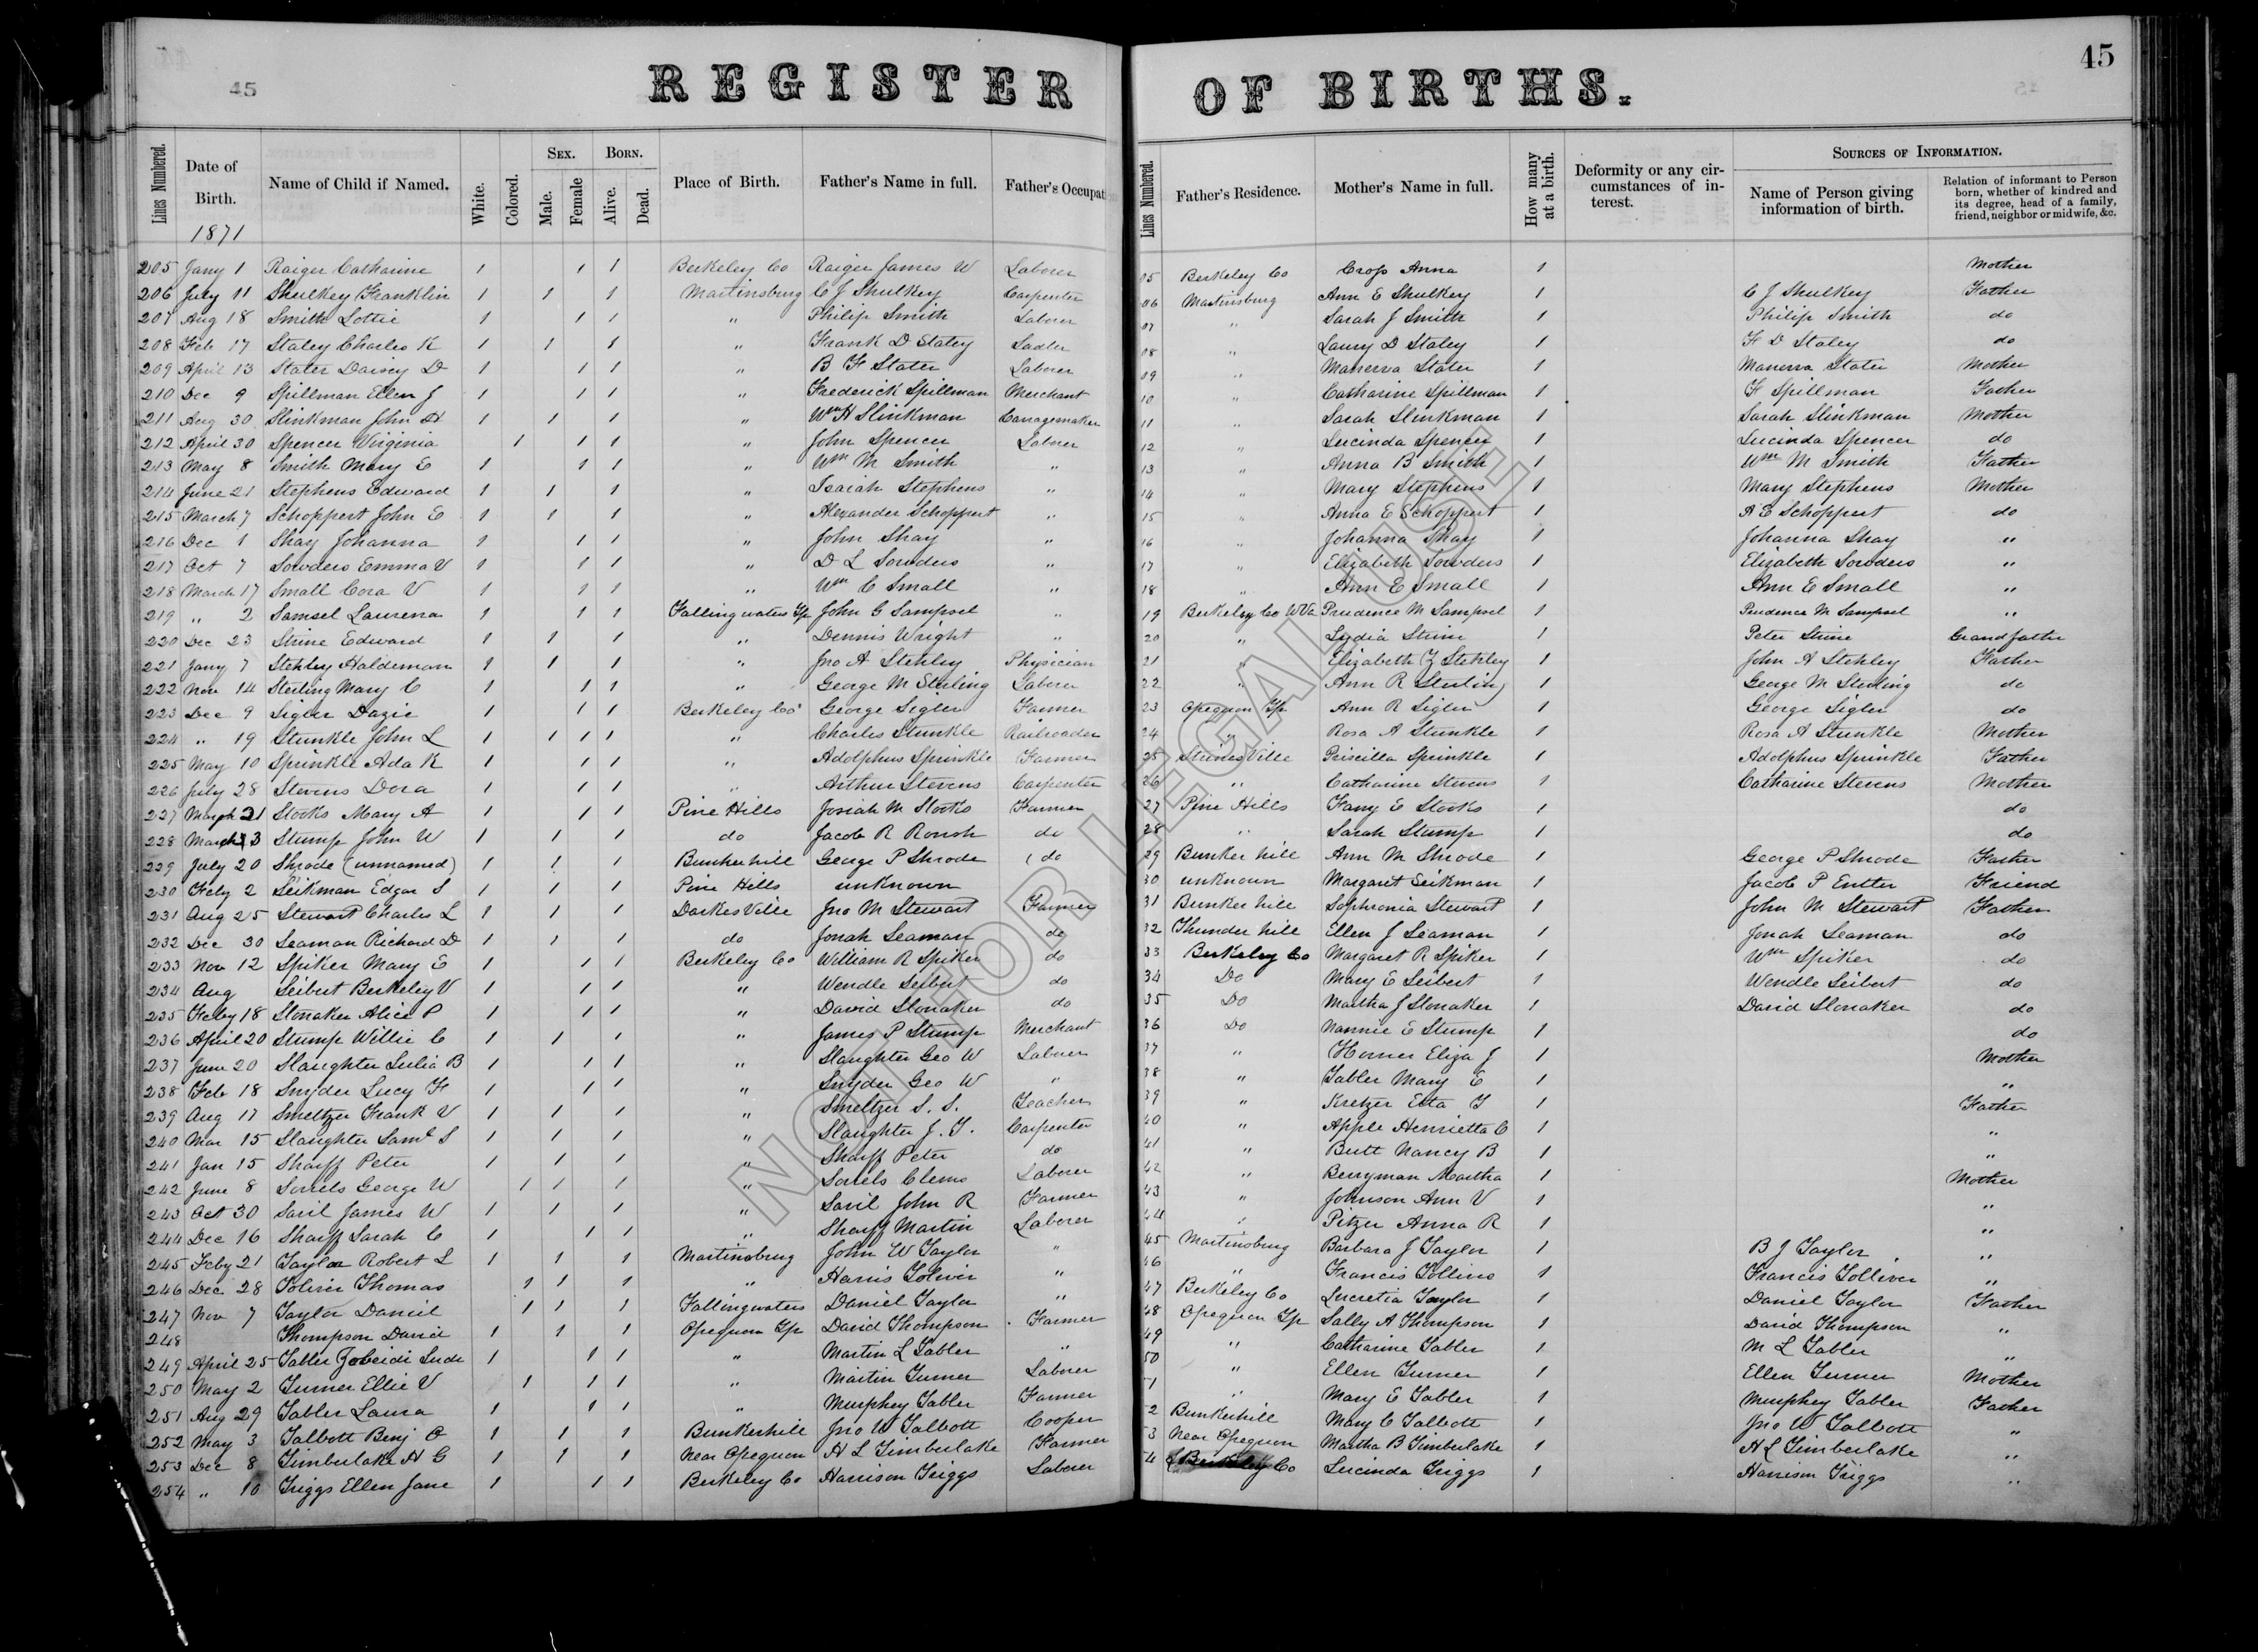 45
REGISTER OF BIRTHS.
45
Lines Numbered. Date of Birth. Name of Child if Named. White. Colored. Sex. Male. Female Born. Alive. Dead. Place of Birth. Father's Name in full. Father's Occupati Lines Numbered. Father's Residence. Mother's Name in full. How many at a birth. Deformity or any circumstances of interest. Sources of Information. Name of Person giving information of birth. Relation of informant to Person born, whether of kindred and its degree, head of a family, friend, neighbor or midwife, &c.
1871
205 Jany 1 Raiger Catharine 1 1 1 Berkeley Co Raiger James W Laborer 05 Berkeley Co Crop Anna 1 Mother
206 July 11 Shulkey Franklin 1 1 1 Martinsburg C J Shulkey Carpenter 06 Martinsburg Ann E Shulkey 1 C J Shulkey Father
207 Aug 18 Smith Lottie 1 1 1 " Philip Smith Laborer 07 " Sarah J Smith 1 Philip Smith do
208 Feb 17 Staley Charles K 1 1 1 " Frank D Staley Sadler 08 " Laury D Staley 1 F D Staley do
209 April 13 Stater Daisey D 1 1 1 " B F Stater Laborer 09 " Manerva Stater 1 Manerva Stater Mother
210 Dec 9 Spillman Ellen J 1 1 1 " Frederick Spillman Merchant 10 " Catharine Spillman 1 F Spillman Father
211 Aug 30 Slinkman John H 1 1 1 " Wm H Slinkman Carragemaker 11 " Sarah Slinkman 1 Sarah Slinkman Mother
212 April 30 Spencer Virginia 1 1 1 " John Spencer Laborer 12 " Lucinda Spencer 1 Lucinda Spencer do
213 May 8 Smith Mary E 1 1 1 " Wm M Smith " 13 " Anna B Smith 1 Wm M Smith Father
214 June 21 Stephens Edward 1 1 1 " Isaiah Stephens " 14 " Mary Stephens 1 Mary Stephens Mother
215 March 7 Schoppert John E 1 1 1 " Alexander Schoppert " 15 " Anna E Schoppert 1 A E Schoppert do
216 Dec 1 Shay Johanna 1 1 1 " John Shay " 16 " Johanna Shay 1 Johanna Shay "
217 Oct 7 Sowders Emma V 1 1 1 " D L Sowders " 17 " Elizabeth Sowders 1 Elizabeth Sowders "
218 March 17 Small Cora V 1 1 1 " Wm C Small " 18 " Ann E Small 1 Ann E Small "
219 " 2 Samsel Laurena 1 1 1 Falling waters Tp John G Sampsel " 19 Berkeley Co W Va Prudence M Sampsel 1 Prudence M Sampsel "
220 Dec 23 Strine Edward 1 1 1 " Dennis Wright " 20 " Lydia Strine 1 Peter Strine Grandfather
221 Jany 7 Stehley Haldeman 1 1 1 " Jno A Stehley Physician 21 " Elizabeth Z Stehley 1 John A Stehley Father
222 Nov 14 Sterling Mary C 1 1 1 " George M Sterling Laborer 22 " Ann R Sterling 1 George M Sterling do
223 Dec 9 Sigler Dazie 1 1 1 Berkeley Co George Sigler Farmer 23 Opequon Tp Ann R Sigler 1 George Sigler do
224 " 19 Stunkle John L 1 1 1 1 " Charles Stunkle Railroader 24 " Rosa A Stunkle 1 Rosa A Stunkle Mother
225 May 10 Sprinkle Ada K 1 1 1 " Adolphus Sprinkle Farmer 25 Strines Ville Priscilla Sprinkle 1 Adolphus Sprinkle Father
226 July 28 Stevens Dora 1 1 1 " Arthur Stevens Carpenter 26 " Catharine Stevens 1 Catharine Stevens Mother
227 March 21 Stooks Mary A 1 1 1 Pine Hills Josiah M Stooks Farmer 27 Pine Hills Fany E Stooks 1 do
228 March 3 Stump John W 1 1 1 do Jacob R Roush do 28 " Sarah Stump 1 do
229 July 20 Shrode (unnamed) 1 1 1 Bunkerhill George P Shrode do 29 Bunker hill Ann M Shrode 1 George P Shrode Father
230 Feby 2 Seikman Edgar S 1 1 1 Pine Hills unknown 30 unknown Margaret Seikman 1 Jacob P Entler Friend
231 Aug 25 Stewart Charles L 1 1 1 Darkes Ville Jno M Stewart Farmer 31 Bunker hill Sophronia Stewart 1 John M Stewart Father
232 Dec 30 Seaman Richard D 1 1 1 do Jonah Seaman do 32 Thunder hill Ellen J Seaman 1 Jonah Seaman do
233 Nov 12 Spiker Mary E 1 1 1 Berkeley Co William R Spiker do 33 Berkeley Co Margaret R Spiker 1 Wm Spiker do
234 Aug Seibert Berkeley V 1 1 1 " Wendle Seibert do 34 Do Mary E Seibert 1 Wendle Seibert do
235 Feby 18 Slonaker Alice P 1 1 1 " David Slonaker do 35 Do Martha J Slonaker 1 David Slonaker do
236 April 20 Stump Willie C 1 1 1 " James P Stump Merchant 36 Do Nannie E Stump 1 do
237 June 20 Slaughter Lulia B 1 1 1 " Slaughter Geo W Laborer 37 " Horner Eliza J 1 Mother
238 Feb 18 Snyder Lucy F 1 1 1 " Snyder Geo W " 38 " Tabler Mary E 1 "
239 Aug 17 Smeltzer Frank V 1 1 1 " Smeltzer S. S. Teacher 39 " Kretzer Etta T 1 Father
240 Mar 15 Slaughter Saml S 1 1 1 " Slaughter J. T. Carpenter 40 " Apple Henrietta C 1 "
241 Jan 15 Sharff Peter 1 1 1 " Sharff Peter do 41 " Butt Nancy B 1 "
242 June 8 Sorrels George W 1 1 1 " Sorrels Clems Laborer 42 " Berryman Martha 1 Mother
243 Oct 30 Saril James W 1 1 1 " Saril John R Farmer 43 " Johnson Ann V 1 "
244 Dec 16 Sharff Sarah C 1 1 1 " Sharff Martin Laborer 44 " Pitzer Anna R 1 "
245 Feby 21 Taylor Robert L 1 1 1 Martinsburg John W Taylor " 45 Martinsburg Barbara J Taylor 1 B J Taylor "
246 Dec 28 Toliver Thomas 1 1 1 " Harris Toliver " 46 " Francis Tolliver 1 Francis Tolliver "
247 Nov 7 Taylor Daniel 1 1 1 Fallingwaters Daniel Taylor " 47 Berkeley Co Lucretia Taylor 1 Daniel Taylor Father
248 Thompson David 1 1 1 Opequon Tp David Thompson Farmer 48 Opequon Tp Sally A Thompson 1 David Thompson "
249 April 25 Tabler Zobeidi Lude 1 1 1 " Martin L Tabler " 49 " Catharine Tabler 1 M L Tabler "
250 May 2 Turner Ellie V 1 1 1 " Martin Turner Laborer 50 " Ellen Turner 1 Ellen Turner Mother
251 Aug 29 Tabler Laura 1 1 1 " Murphey Tabler Farmer 51 " Mary E Tabler 1 Murphey Tabler Father
252 May 3 Talbott Benj O 1 1 1 Bunkerhill Jno W Talbott Cooper 2 Bunkerhill Mary C Talbott 1 Jno W Talbott "
253 Dec 8 Timberlake H G 1 1 1 Near Opequon H L Timberlake Farmer 3 Near Opequon Martha B Timberlake 1 H L Timberlake "
254 " 10 Triggs Ellen Jane 1 1 1 Berkeley Co Harrison Triggs Laborer 4 Berkeley Co Lucinda Triggs 1 Harrison Triggs "
NOT FOR LEGAL USE